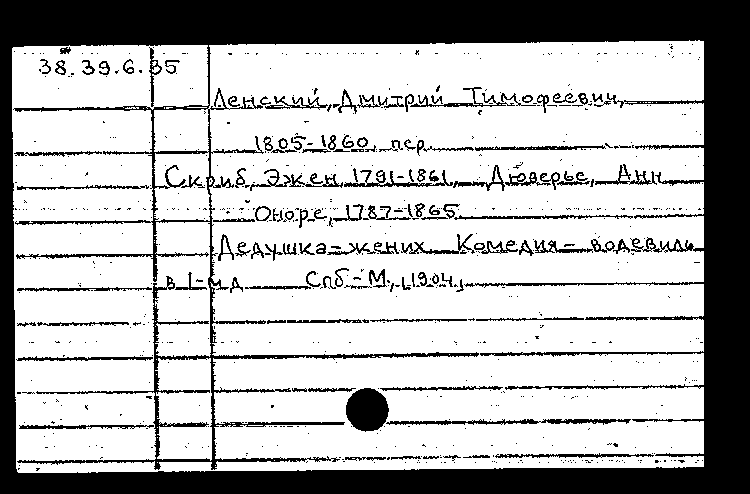 38.39.6.35
Ленский, Дмитрий Тимофеевич,
1805-1860, пер.
Скриб, Эжен 1791-1861, Дюверье, Анн
Оноре, 1787-1865
Дедушка-жених Комедия-водевиль
в 1-м д Спб-М., [1904]